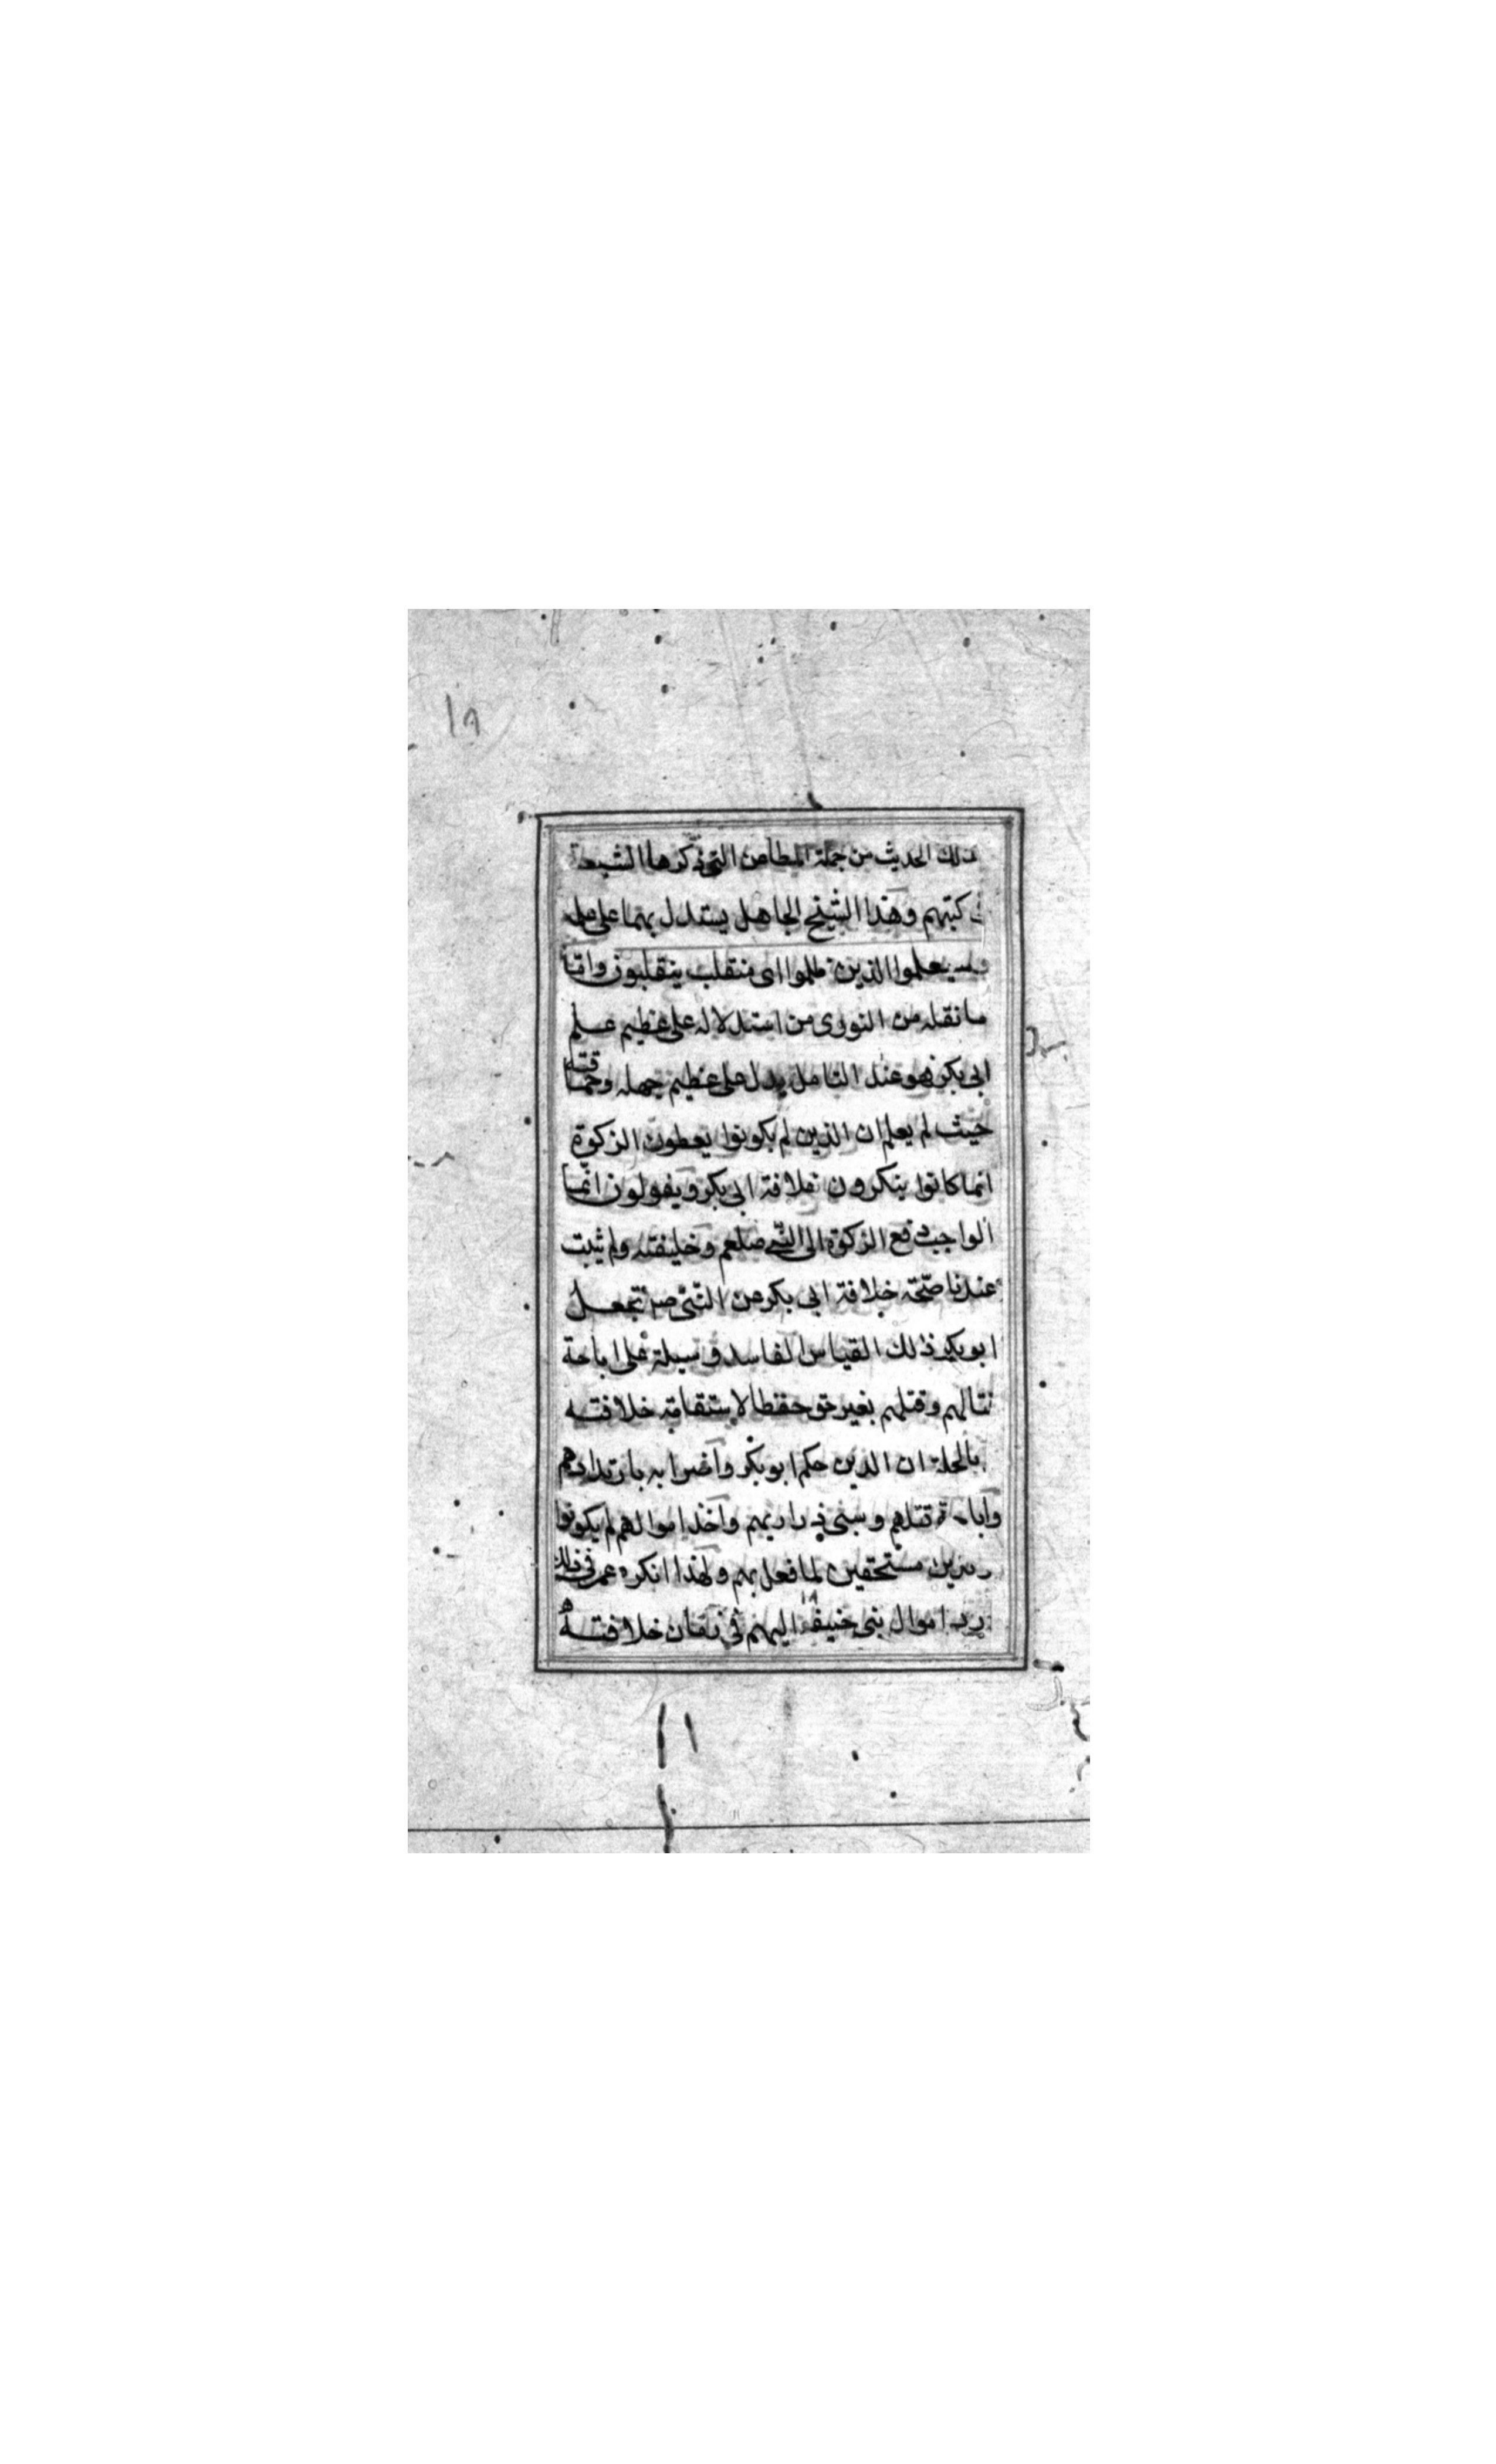 ذلك الحديث من جملة المطاعن التي ذكرها الشيعة
في كتبهم وهذا الشيخ الجاهل يستدل بهما على
وسيعلموا الذين ظلموا اى منقلب ينقلبون وامّا
ما نقله من النووى من استدلاله على عظيم علم
ابى بكر فهو عند التامل يدل على عظيم جهله وحماقته
حيث لم يعلم ان الذين لم يكونوا يعطون الزكوة
انما كانوا ينكرون خلافة ابى بكر ويقولون انّما
الواجب دفع الزكوة الى النّبى صلعم وخليفته ولم يثبت
عندنا صحّة خلافة ابى بكر من النّبى فجعل
ابو بكر ذلك القياس الفاسد وسيلة على اباحة
قتالهم وقتلهم بغير حق حفظا لاستقامة خلافته
بالجملة ان الذين حكم ابو بكر واضرابه بارتدادهم
واباحة قتلهم وسبى ذراريهم واخذ اموالهم لم يكونوا
مرتدين مستحقين لما فعل بهم ولهذا انكره عمر فى ذلك
ورد اموال بنى حنيفة اليهم فى زمان خلافته
١٨